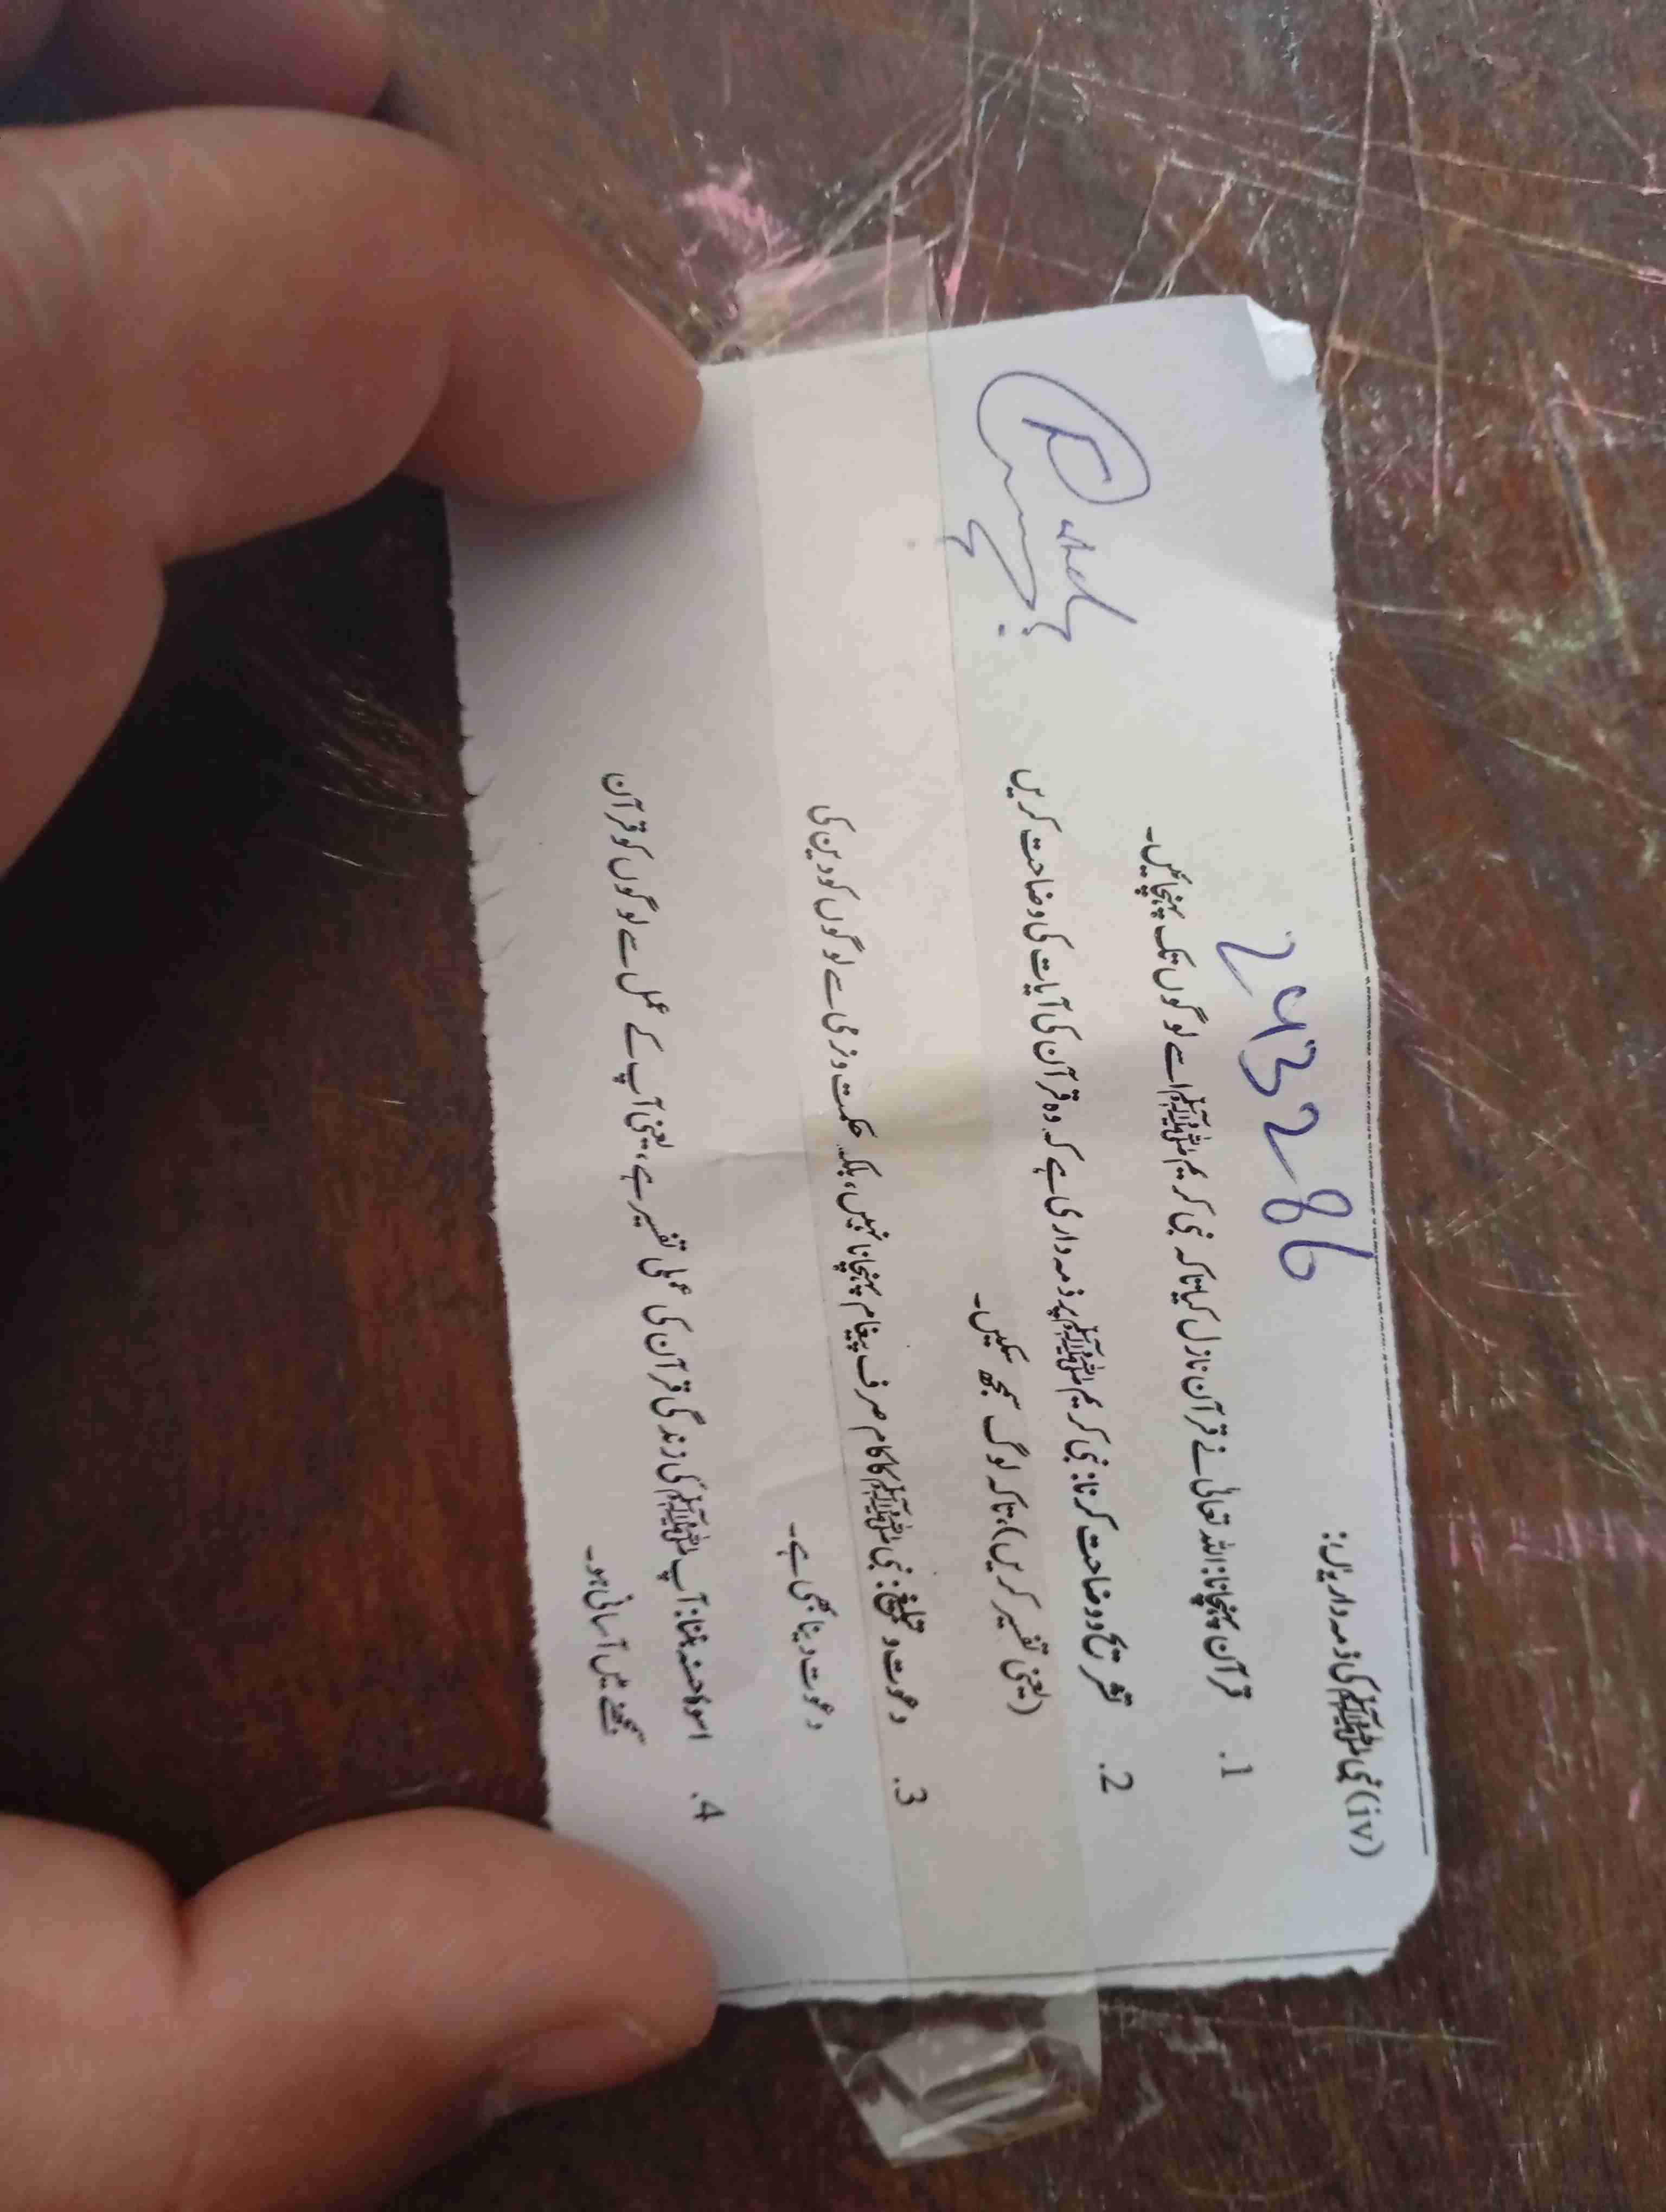 (iv) نبی ﷺ کی ذمہ داریاں:
243286
1. قرآن پہنچانا: اللہ تعالیٰ نے قرآن نازل کیا تاکہ نبی کریم ﷺ اسے لوگوں تک پہنچائیں۔
2. تشریح و وضاحت کرنا: نبی کریم ﷺ پر ذمہ داری ہے کہ وہ قرآن کی آیات کی وضاحت کریں
(یعنی تفسیر کریں)، تاکہ لوگ سمجھ سکیں۔
3. دعوت و تبلیغ: نبی ﷺ کا کام صرف پیغام پہنچانا نہیں، بلکہ حکمت و نرمی سے لوگوں کو دین کی
دعوت دینا بھی ہے۔
4. اسوۂ حسنہ بننا: آپ ﷺ کی زندگی قرآن کی عملی تفسیر ہے، یعنی آپ کے عمل سے لوگوں کو قرآن
سمجھنے میں آسانی ہو۔